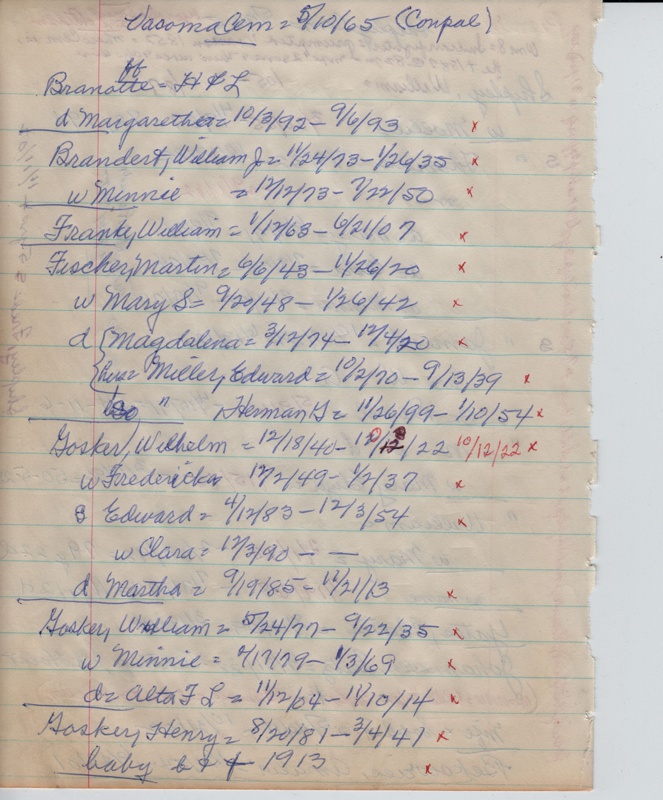 Vasoma Cem = 5/10/65 (Conpal)
Hf
Branotte = H & L
d Margarethe = 10/3/92 - 9/6/93 x
Brandert, William J = 11/24/73 - 1/26/35 x
w Minnie = 12/12/73 - 7/22/50 x
Franke, William = 1/12/63 - 6/21/07 x
Fischer, Martin = 6/6/43 - 11/26/20 x
w Mary S = 9/20/48 - 1/26/42 x
d { Magdalena = 3/12/74 - 12/4/20 x
Miller, Edward = 10/2/70 - 9/13/39 x
so " , Herman G = 11/26/99 - 1/10/54 x
Gosker, Wilhelm = 12/18/40 - /22 10/12/22 x
w Fredericka 12/2/49 - 1/2/37 x
s Edward = 4/12/83 - 12/3/54 x
w Clara = 12/3/90 - —
d Martha = 9/19/85 - 11/21/13 x
Gosker, William = 5/24/77 - 9/22/35 x
w Minnie = 4/17/79 - 1/3/69 x
d = Alta F L = 11/12/04 - 11/10/14 x
Gosker, Henry = 8/20/81 - 3/4/41 x
baby b & f 1913 x